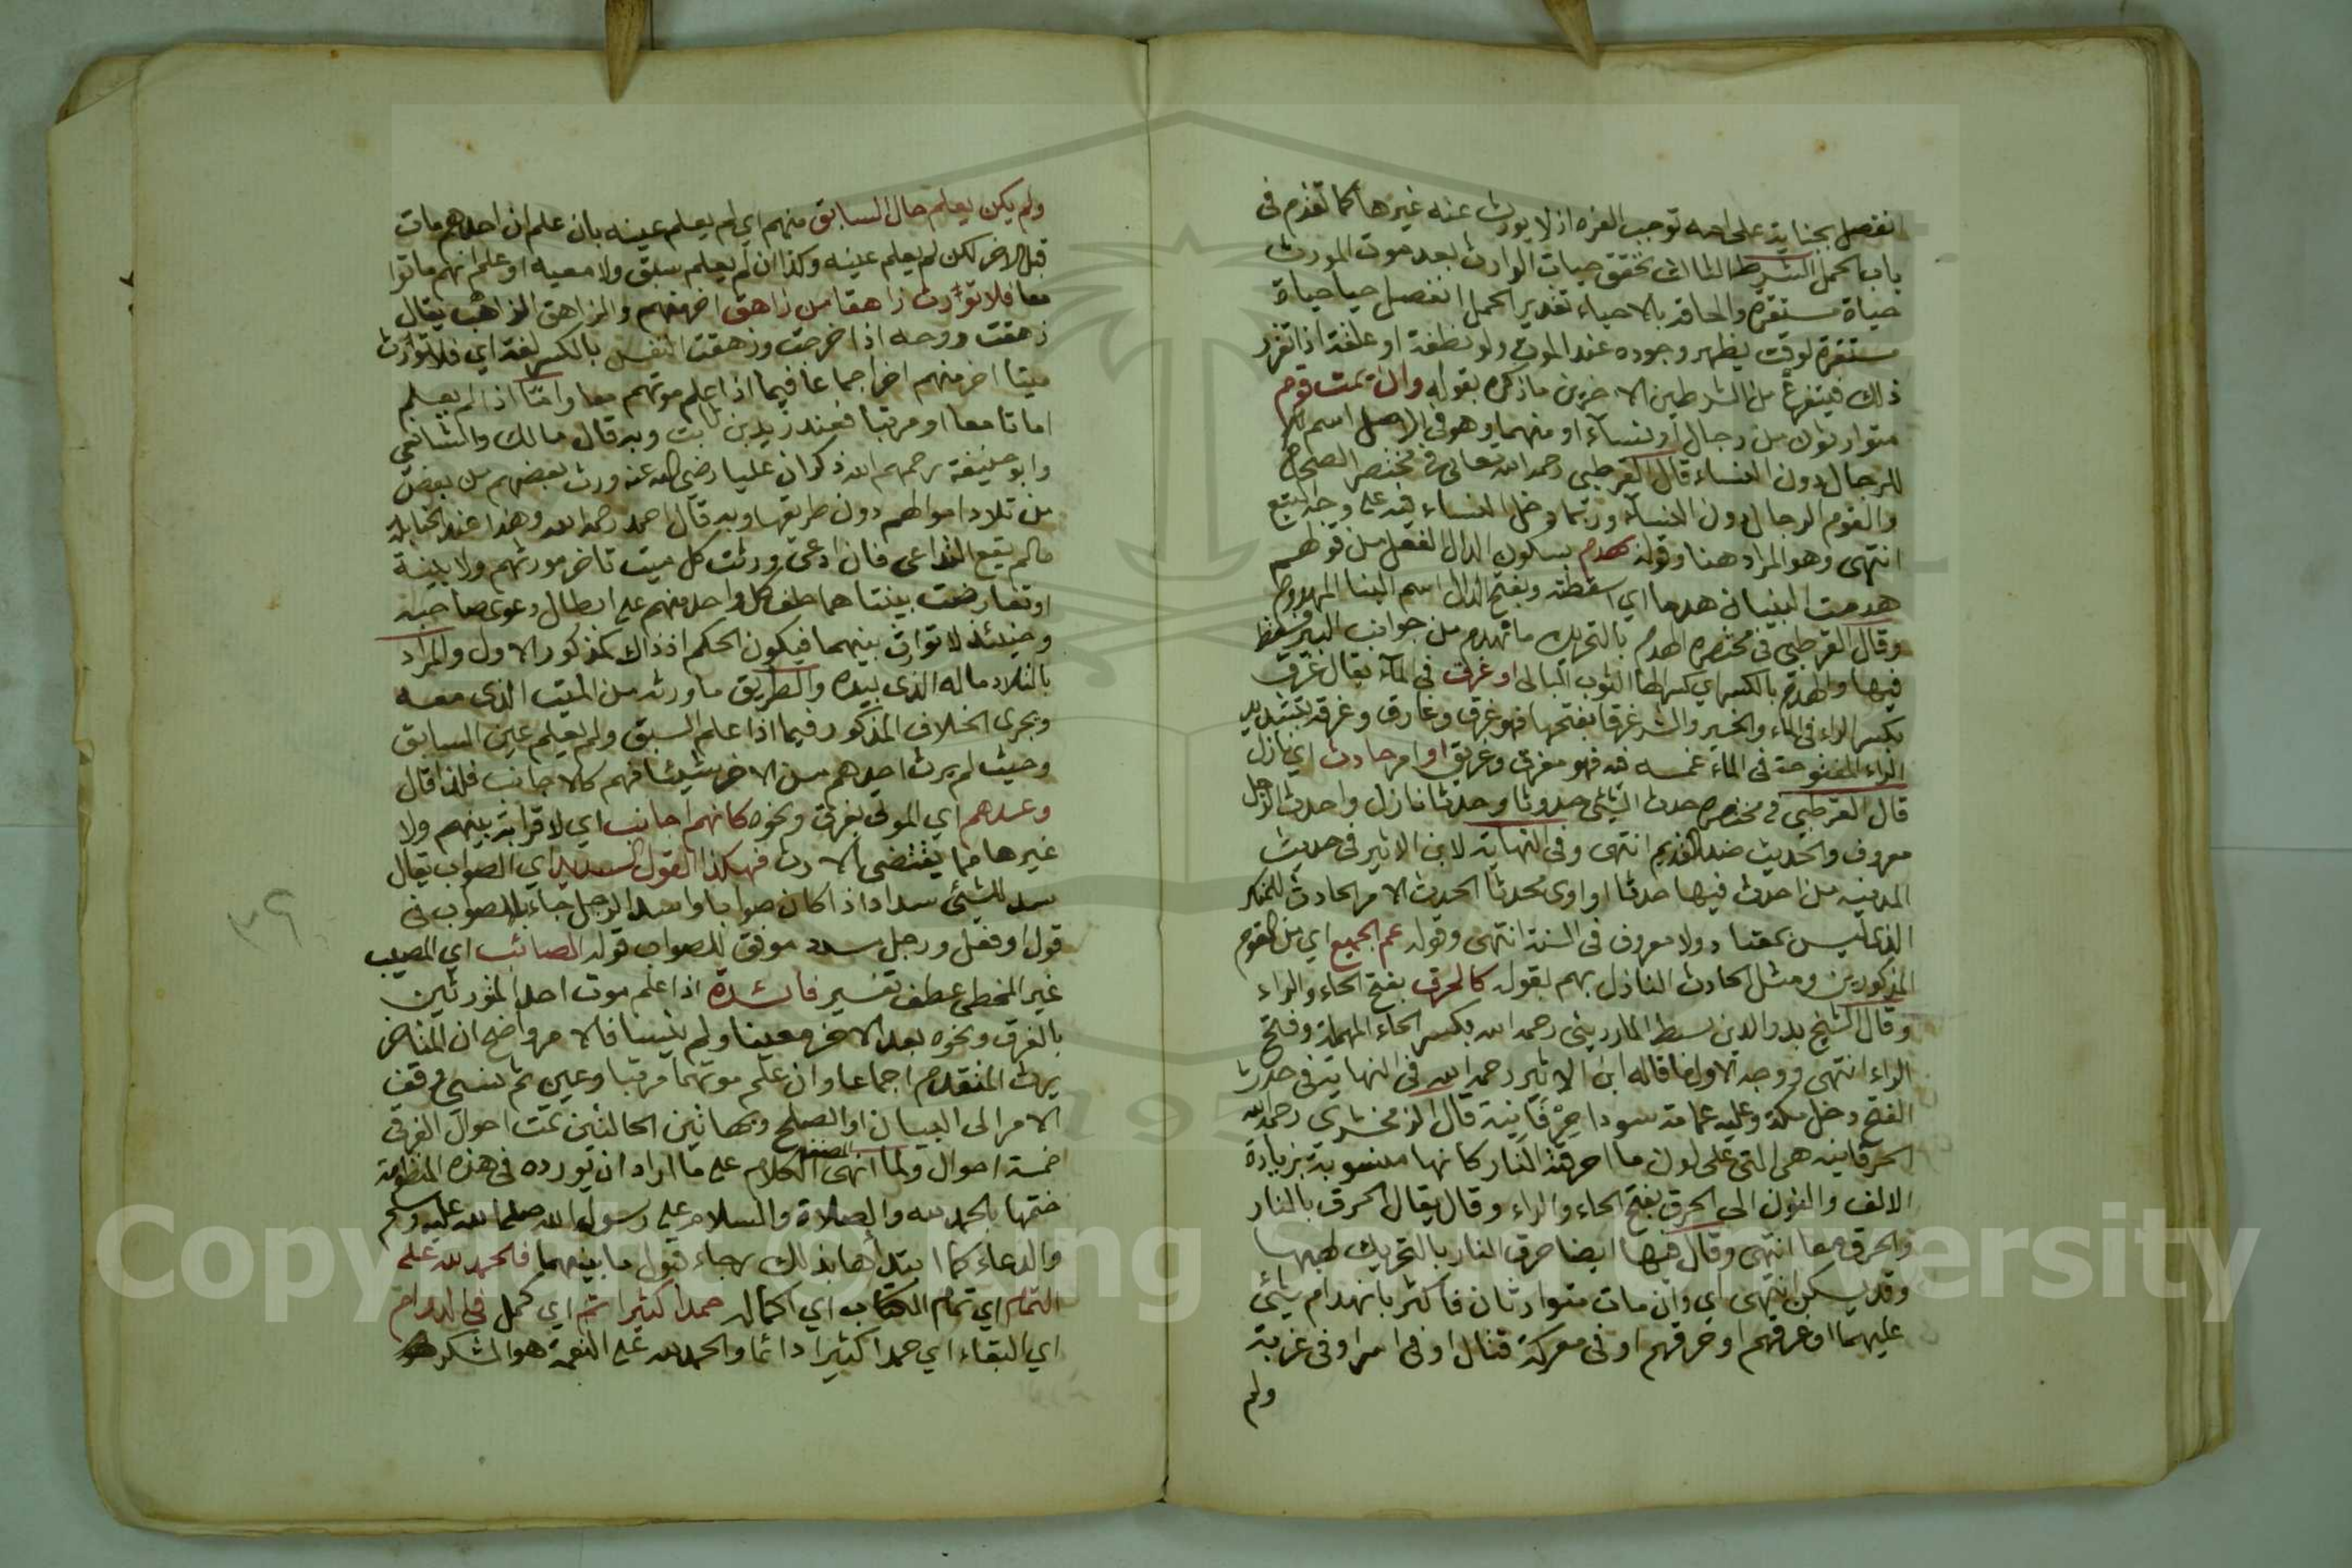 انفصل بجناية على امه توجب الغره اذ لا يورث عنه غيرها كما تقدم فى
باب الحمل الشرط الثالث تحقق حيات الوارث بعد موت المورث
حياة مستقره والحاقه بالاحياء تقديرا لحمل انفصل حيا حياة
مستقرة لوقت يظهر وجوده عند الموت ولو نطفة او علقة اذا تقرر
ذلك فيتفرع من الشرطين الاخرين ما ذكره بقوله وان يمت قوم
متوارثون من رجال او نساء او منهما وهو فى الاصل اسم
للرجال دون النساء قال القرطبى رحمه الله تعالى فى مختصر الصحاح
والقوم الرجال دون النساء وربما دخل النساء فيه على وجه التبع
انتهى وهو المراد هنا وقوله بهدم بسكون الدال الفعل من قولهم
هدمت البنيان هدما اي اسقطته وبفتح الدال اسم البنا المهدوم
وقال القرطبى فى مختصره الهدم بالتحريك ما تهدم من جوانب البير فسقط
فيها والهدم بالكسر اي كسر الها الثوب البالى او غرق فى الماء يقال غرق
بكسر الراء فى الماء والخير والشر غرقا بفتحها فهو غرق وغارق وغرقه بتشديد
الراء المفتوحة فى الماء غمسه فيه فهو مغرق وغريق او امر حادث اي نازل
قال القرطبى فى مختصره حدث الشئ حدوثا وحدثا نازل واحدث الرجل
معروف والحديث ضد القديم انتهى وفى النهاية لابن الاثير فى حديث
المدينه من احدث فيها حدثا او اوى محدثا الحدث الامر الحادث المنكر
الذى ليس بمعتاد ولا معروف فى السنة انتهى وقوله عم الجميع اي من القوم
المذكورين ومثل الحادث النازل بهم بقوله كالحرق بفتح الحاء والراء
وقال الشيخ بدر الدين سبط الماردينى رحمه الله بكسر الحاء المهملة وفتح
الراء انتهى ووجه الاول ما قاله ابن الاثير رحمه الله فى النهاية فى حديث
الفتح دخل مكة وعليه عمامة سودا حرقانية قال الزمخشرى رحمه الله
الحرقانيه هى التى على لون ما احرقته النار كانها منسوبة بزيادة
الالف والنون الى الحرق بفتح الحاء والراء وقال يقال الحرق بالنار
والحرق معا انتهى وقال فيها ايضا حرق النار بالتحريك لهبها
وقد يسكن انتهى اي وان مات متوارثان فاكثر بانهدام شئ
عليهما او غرقهم او حرقهم او فى معركة قتال او فى اسر او فى غربة
ولم
ولم يكن يعلم حال السابق منهم اي لم يعلم عينه بان علم ان احدهم مات
قبل الاخر لكن لم يعلم عينه وكذا ان لم يعلم سبق ولا معيه او علم انهم ماتوا
معا فلا تورث زاهقا من زاهق اخر منهم والزاهق الذاهب يقال
زهقت روحه اذا خرجت وزهقت النفس بالكسر لغة اي فلا تورث
ميتا اخر منهم اخر اجماعا فيما اذا علم موتهم معا وامّا اذا لم يعلم
اماتا معا او مرتبا فعند زيد بن ثابت وبه قال مالك والشافعى
وابو حنيفة رحمهم الله ذكر ان عليا رضى الله عنه ورث بعضهم من بعض
من تلاد اموالهم دون طريقها وبه قال احمد رحمه الله وهذا عند الحنابلة
مالم يقع التداعى فان ادعى ورثت كل ميت تاخر مورثهم ولا بينة
او تعارضت بينتاهما حلف كل واحد منهم على ابطال دعوى صاحبه
وحينئذ لا توارث بينهما فيكون الحكم اذ ذاك كمذكور الاول والمراد
بالتلاد ماله الذى بيده والطريق ما ورثه من الميت الذى معه
ويجرى الخلاف المذكور فيما اذا علم السبق ولم يعلم عين السابق
وحيث لم يرث احدهم من الاخر شيئا فهم كالاجانب فلذا قال
وعدهم اي الموتى بغرق ونحوه كانهم اجانب اي لا قرابة بينهم ولا
غيرها مما يقتضى الارث فهكذا القول السديد اي الصواب يقال
سد الشئ سدادا اذا كان صوابا واسد الرجل جاء بالصواب فى
قول او فعل ورجل مسدد موفق للصواب قوله الصائب اي المصيب
غير المخطى عطف تفسير فائدة اذا علم موت احد المتورثين
بالغرق ونحوه بعد الاخر معينا ولم ينسا فالامر واضح ان المتاخر
يرث المتقدم اجماعا وان علم موتهما مرتبا وعين ثم نسى وقف
الامر الى البيان او الصلح وبهاتين الحالتين تمت احوال الغرقى
خمسة احوال ولما انهى المصنف الكلام على ما اراد ان يورده فى هذه المنظومة
ختمها بالحمد لله والصلاة والسلام على رسول الله صلى الله عليه وسلم
والدعاء كما ابتداها بذلك رجاء قبول ما بينهما فالحمد لله على
التمام اي تمام الكتاب اي اكماله حمدا كثيرا تم اي كمل فى الدوام
اي البقاء اي حمدا كثيرا دائما والحمد لله على النعمة هو الشكر
٣٩
Copyright © King Saud University
195